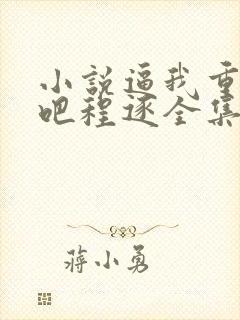 小説逼我重
吧程逐全集
蒋小勇